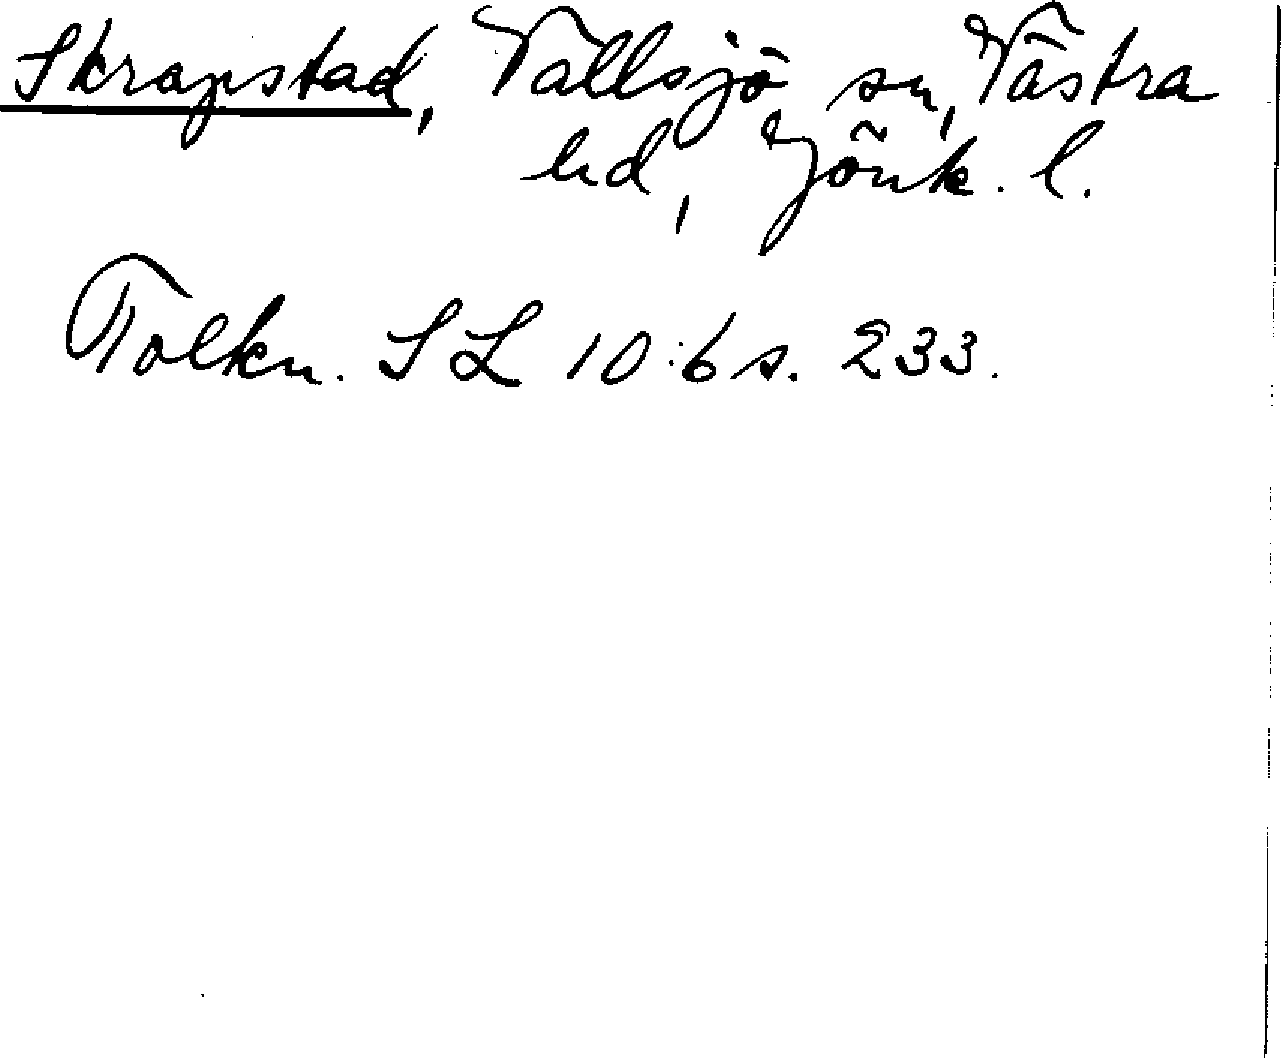 Skrapstad, Vallsjö sn, Västra
hd, Jönk. l.
Tolkn. SL 10:6 s. 233.